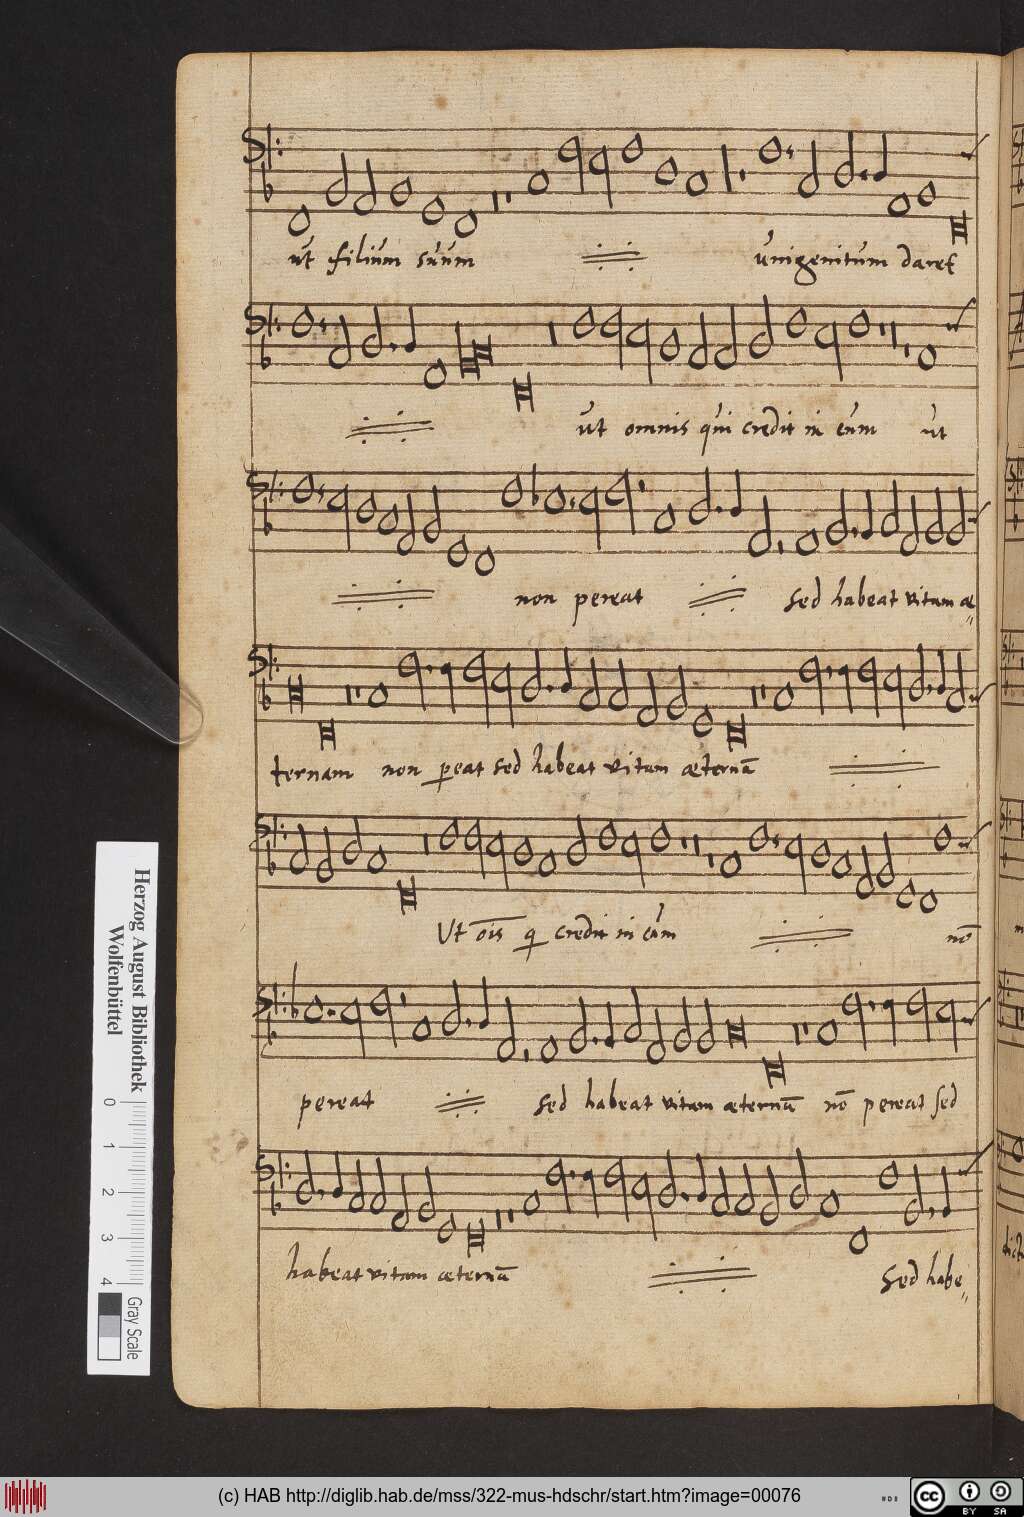 ut filium suum unigenitum daret
ut omnis qui credit in eum ut
non pereat sed habeat vitam æ=
ternam non peat sed habeat vitam æternā
Ut ōis q credit in eūm nō
pereat sed habeat vitam æternā nō pereat sed
habeat vitam æternā sed habe=
Herzog August Bibliothek
Wolfenbüttel
0 1 2 3 4
Gray Scale
(c) HAB http://diglib.hab.de/mss/322-mus-hdschr/start.htm?image=00076
cc
BY SA